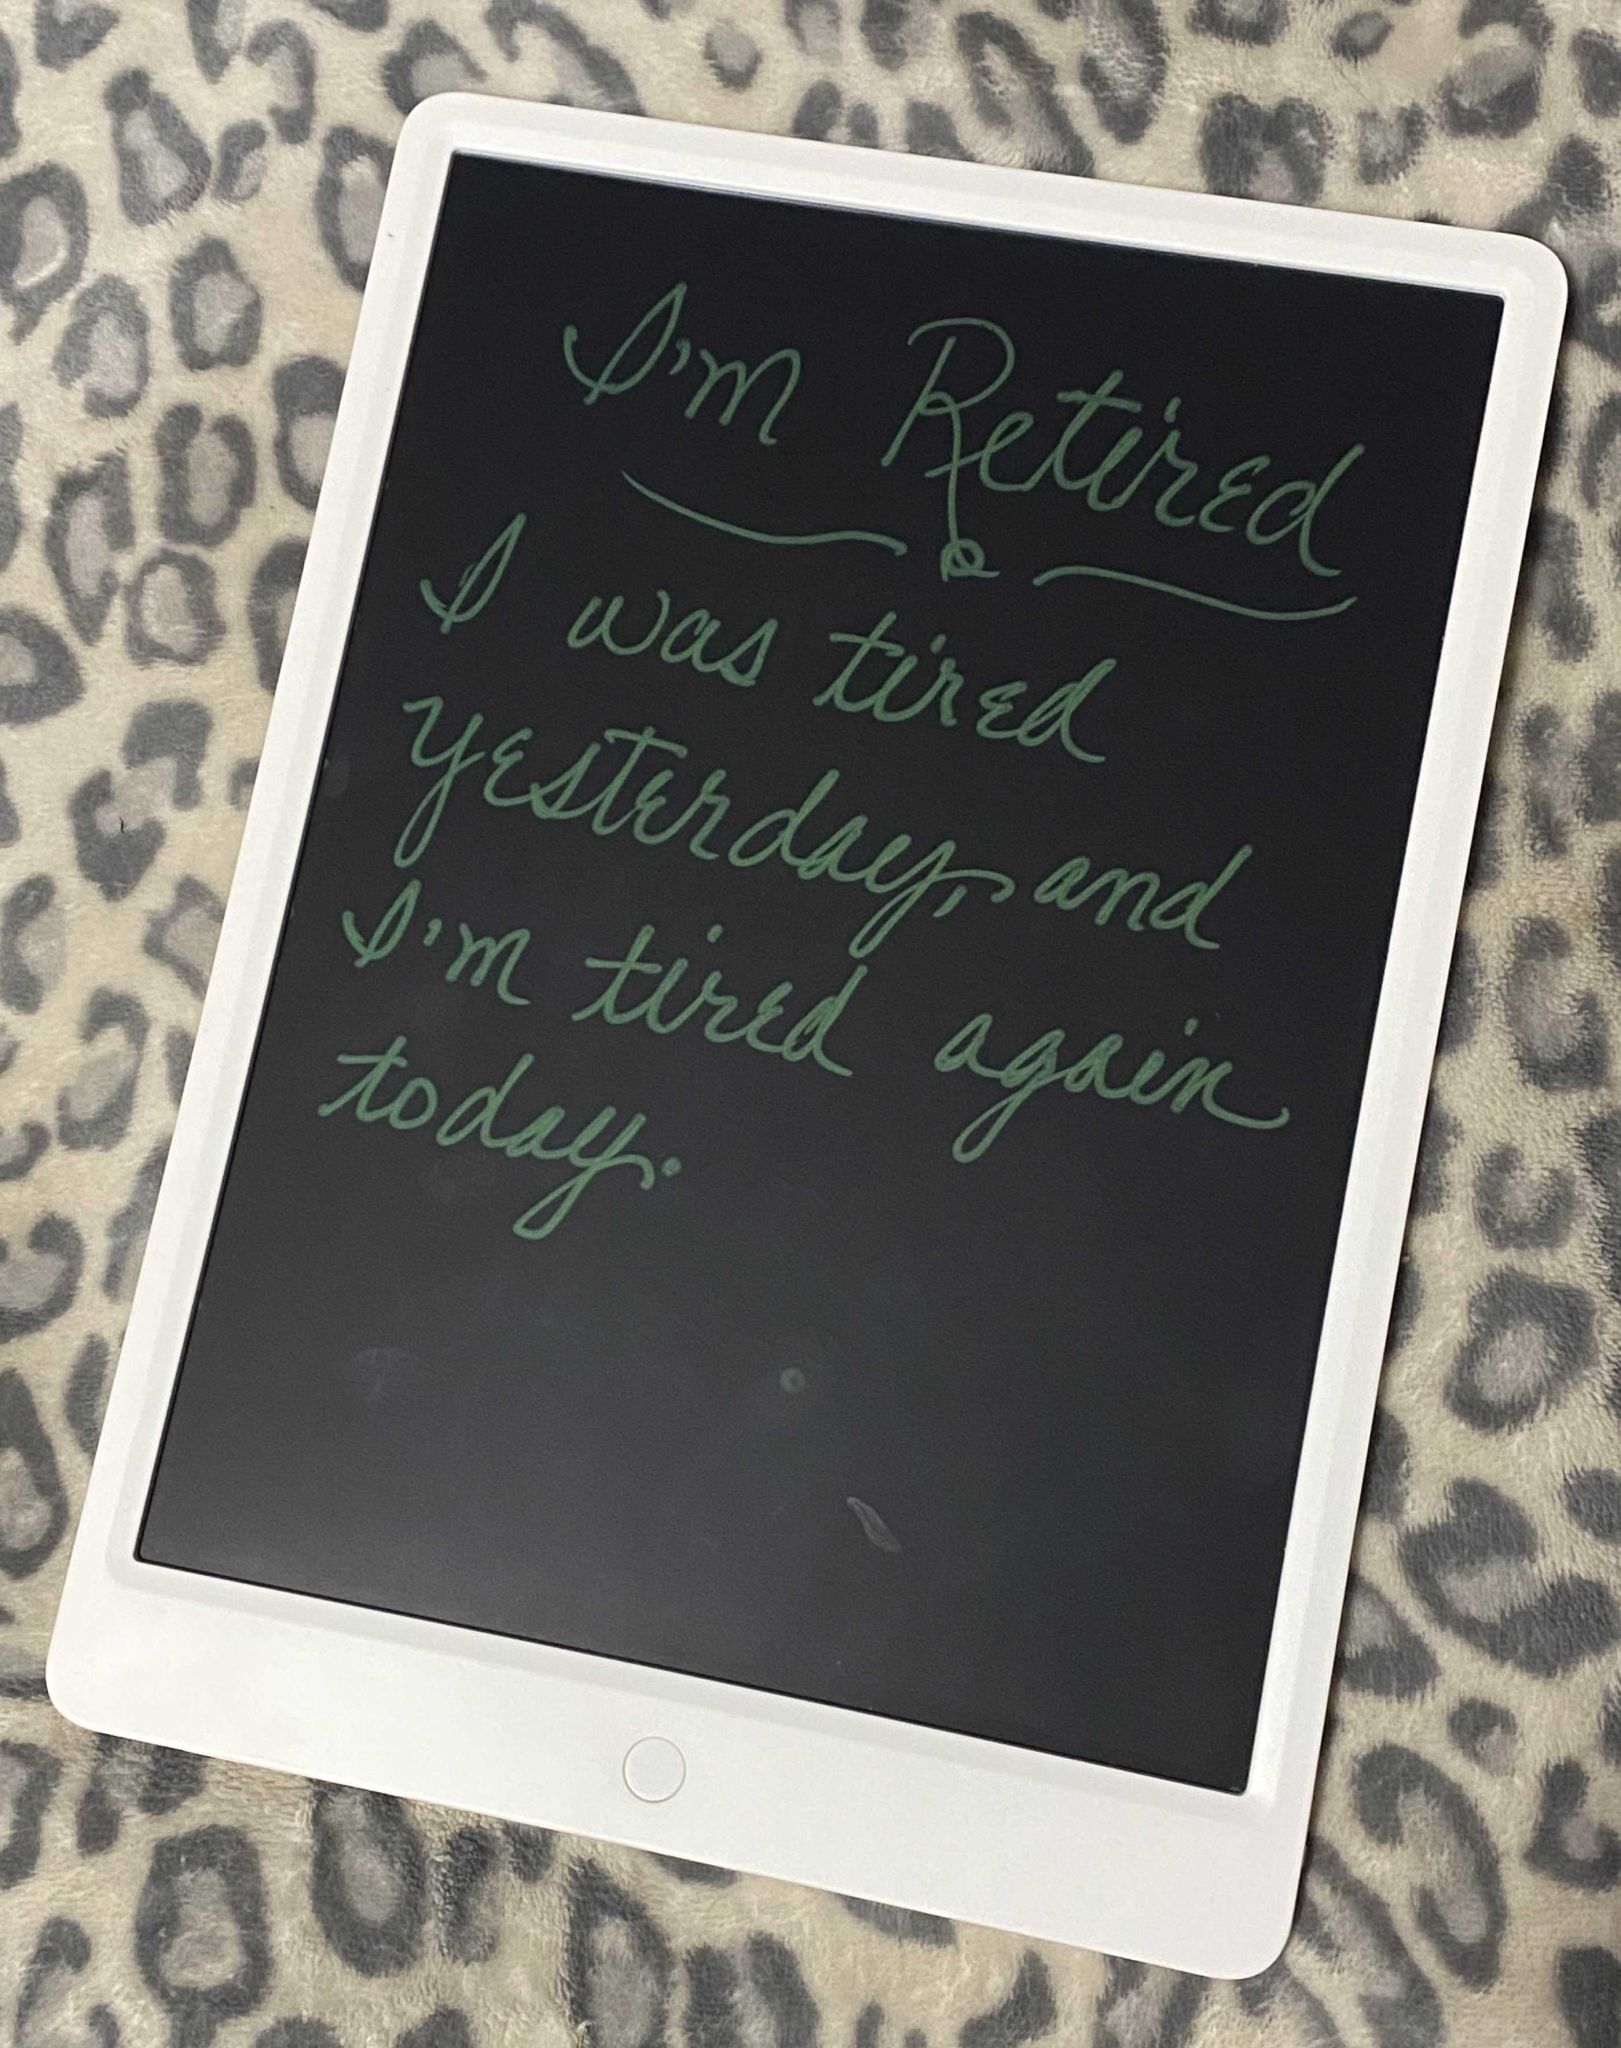 I'm Retired
I was tired
yesterday, and
I'm tired again
today.